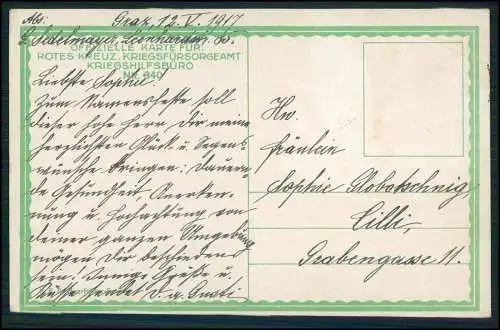 Abs: Graz, 12. V. 1917
L. Sedelmayer, Leonhardstr.
OFFIZIELLE KARTE FÜR:
ROTES KREUZ, KRIEGSFÜRSORGEAMT
KRIEGSHILFSBÜRO
NR. 840
Liebste Sophie!
Zum Namensfeste soll
dieser hohe Herr Dir meine
herzlichsten Glück- u Segens-
wünsche bringen: Dauern-
de Gesundheit, Anerken-
nung u. Hochachtung von
deiner ganzen Umgebung
mögen Dir beschieden
sein! Innige Grüße u
Küsse sendet D. a. Gusti
Hw.
Fräulein
Sophie Globotschnig
Cilli,
Grabengasse 11.